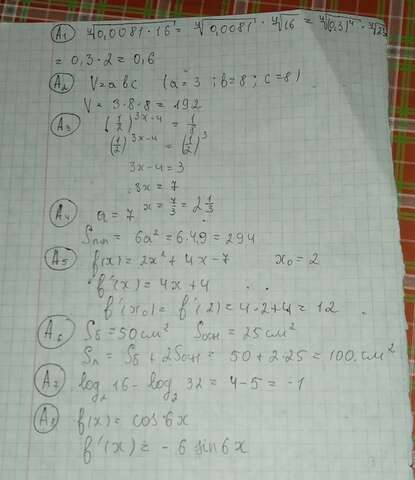 A1 ∜0,0081 · 16 = ∜0,0081 · ∜16 = ∜(0,3)⁴ · ∜2⁴
= 0,3 · 2 = 0,6
A2 V = abc (a = 3 ; b = 8 ; c = 8)
V = 3 · 8 · 8 = 192
A3 (1/2)^(3x-4) = 1/8
(1/2)^(3x-4) = (1/2)^3
3x - 4 = 3
3x = 7
x = 7/3 = 2 1/3
A4 a = 7
Sпп = 6a² = 6 · 49 = 294
A5 f(x) = 2x² + 4x - 7 x₀ = 2
f'(x) = 4x + 4
f'(x₀) = f'(2) = 4 · 2 + 4 = 12
A6 Sб = 50 см² Sосн = 25 см²
Sп = Sб + 2Sосн = 50 + 2 · 25 = 100 см²
A7 log₂ 16 - log₂ 32 = 4 - 5 = -1
A8 f(x) = cos 6x
f'(x) = - 6 sin 6x